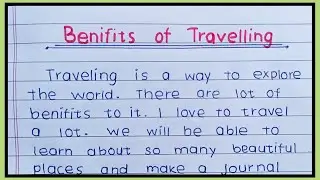 Benifits of Travelling
Traveling is a way to explore
the world. There are lot of
benifits to it. I love to travel
a lot. We will be able to
learn about so many beautiful
places and make a journal